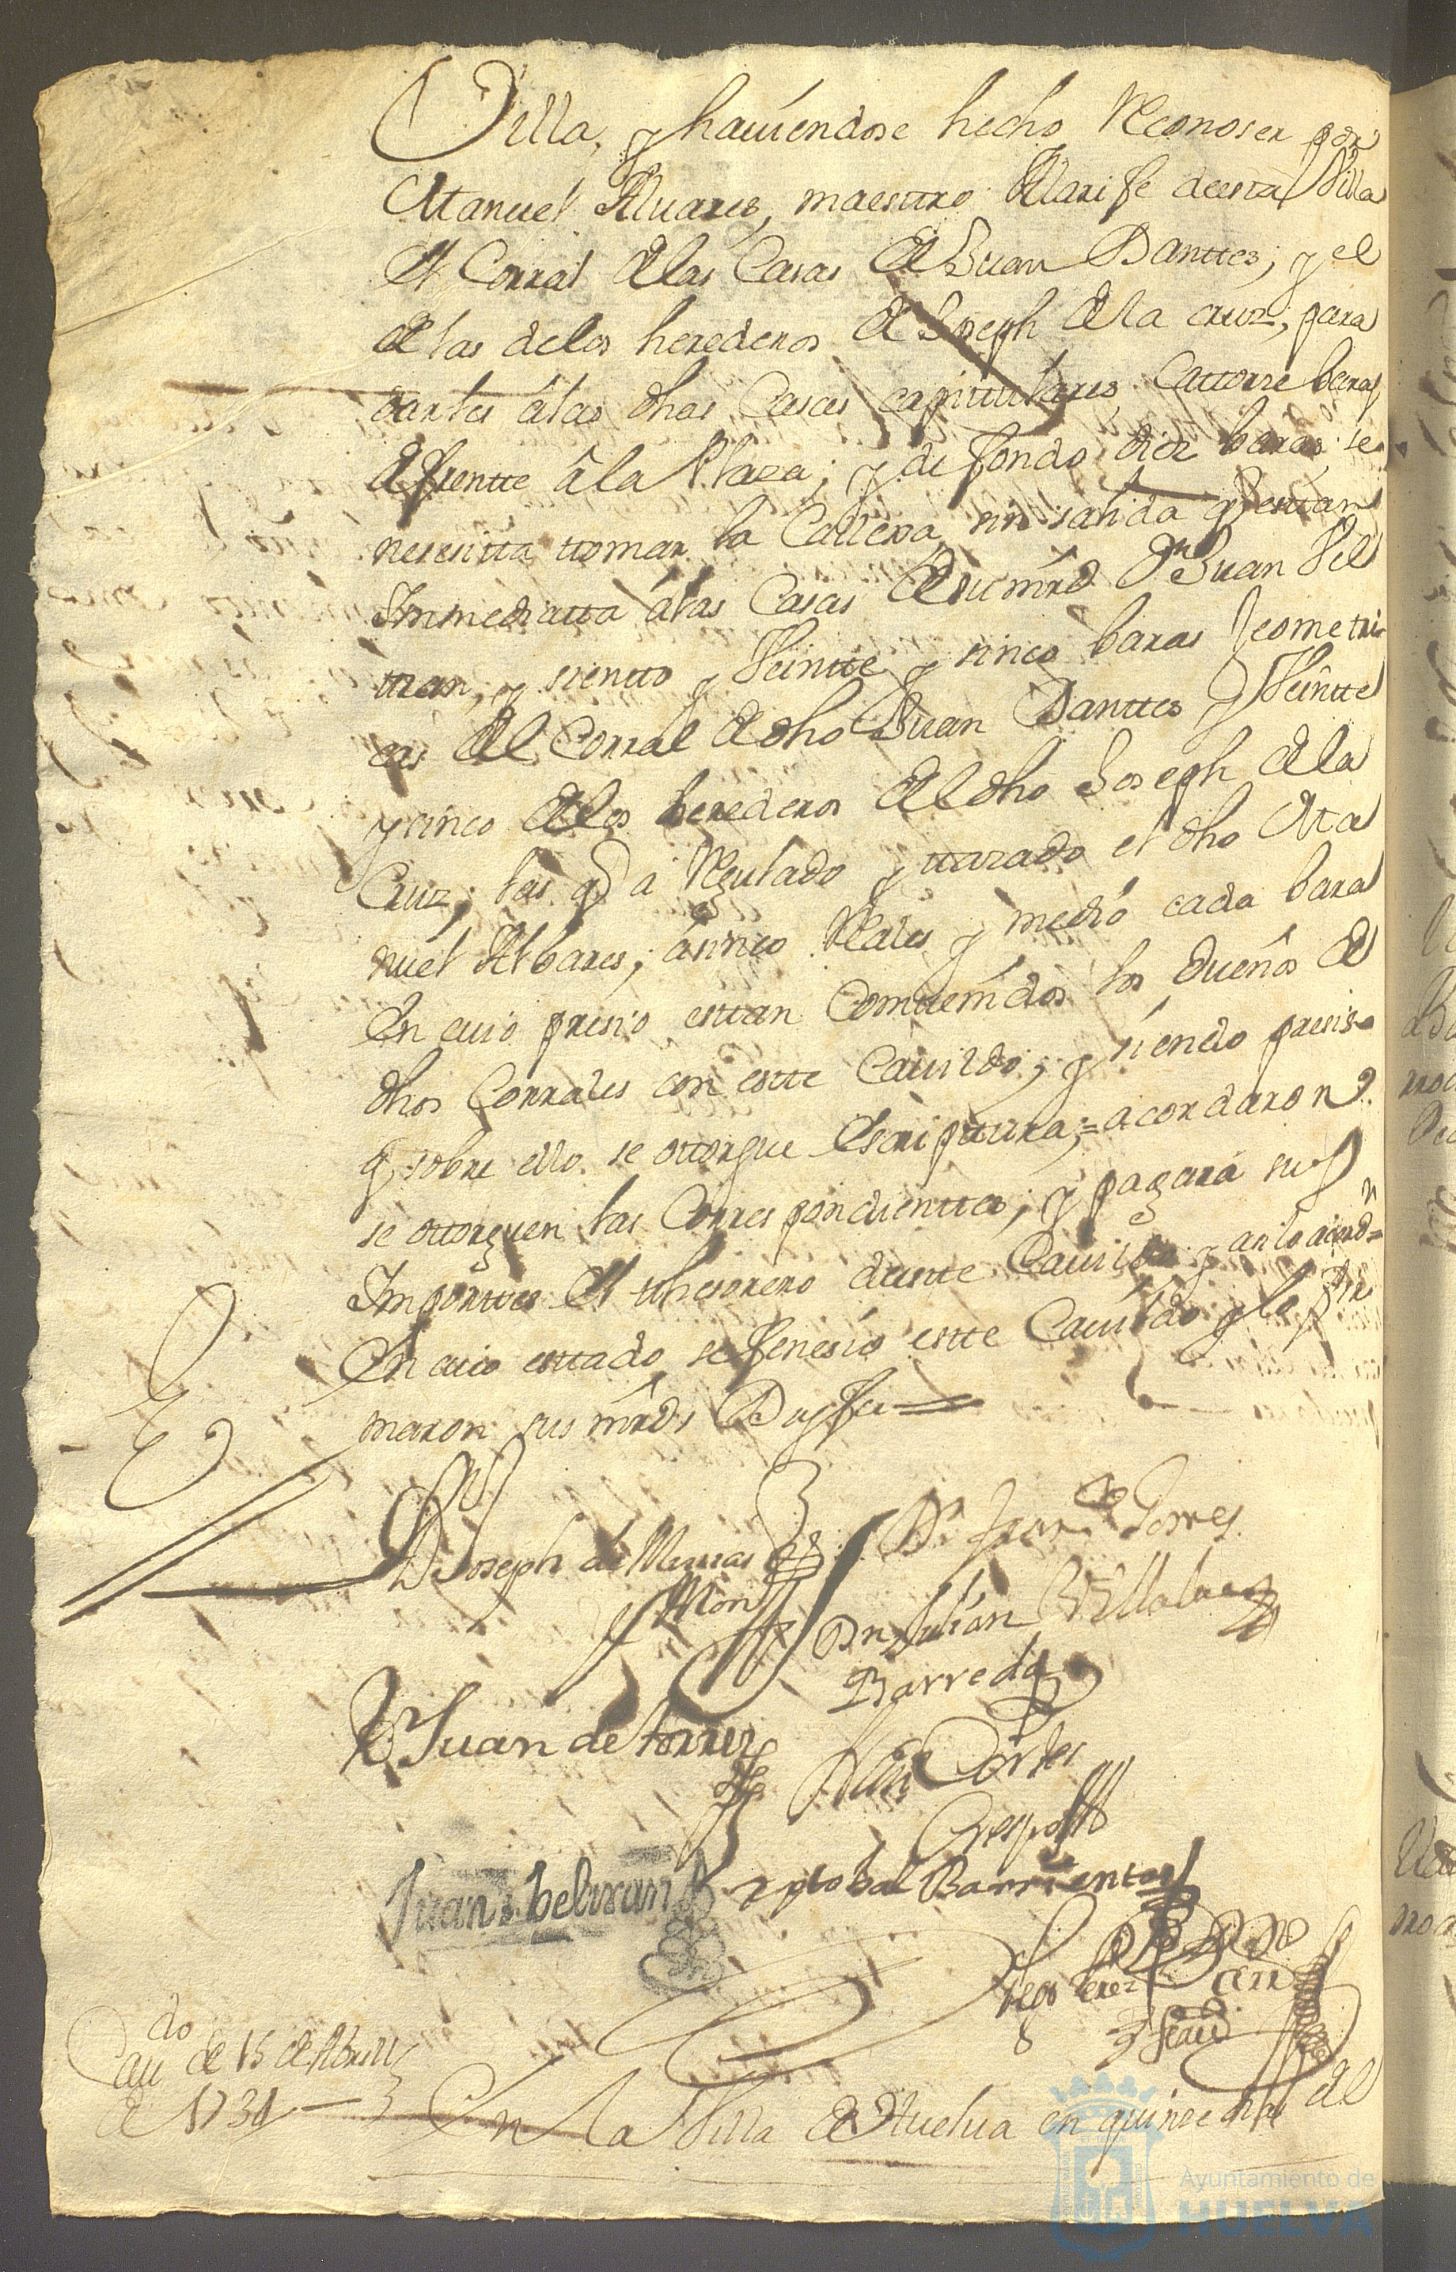 Villa, y haviendose hecho Reconoser por
Manuel Alvares, maestro Alarife de esta Villa
el Corral de las Casas de Juan Danttes, y el
de las de los herederos de Joseph de la cruz, para
darles á las dhas Casas capitulares Cattorze baras
de frentte â la Plaza; y de fondo diez baras se
nesesitta tomar la Calleja sin salida q̃ esttan
Immediatta á las Casas de su mrd Dn Juan Vel
tran, y sientto y Veintte y sinco baras Jeometri
cas del Corral de dho Juan Danttes y Veintte
y cinco de los herederos del dho Joseph de la
Cruz; las q̃ a Regulado y tazado el dho Ma
nuel Albares, á sinco Reales y medio cada bara
En cuio presio esttan Combenidos los dueños de
dhos Corrales con estte Cavildo; y siendo presiso
q̃ sobre ello se ottorgue Escripttura; = acordaron
se ottorguen las Correspondienttes, y pagará sus
Importtes el thesorero deestte Cavildo y asi lo acord.n
En cuio esttado se fenesio estte Cavildo y lo fir
maron sus mrds Doy fee
Dn Joseph de
Dn Fran.co Torres
Dn Julian Villalva
Barreda
Juan de torres
Cortes
Crespo
Juan beltran
Xptobal Barrientos
Diego Perez
Cavdo de 15 de Abrill
de 1731
En la Villa de Huelva en quinze dias del
Ayuntamiento de
HUELVA